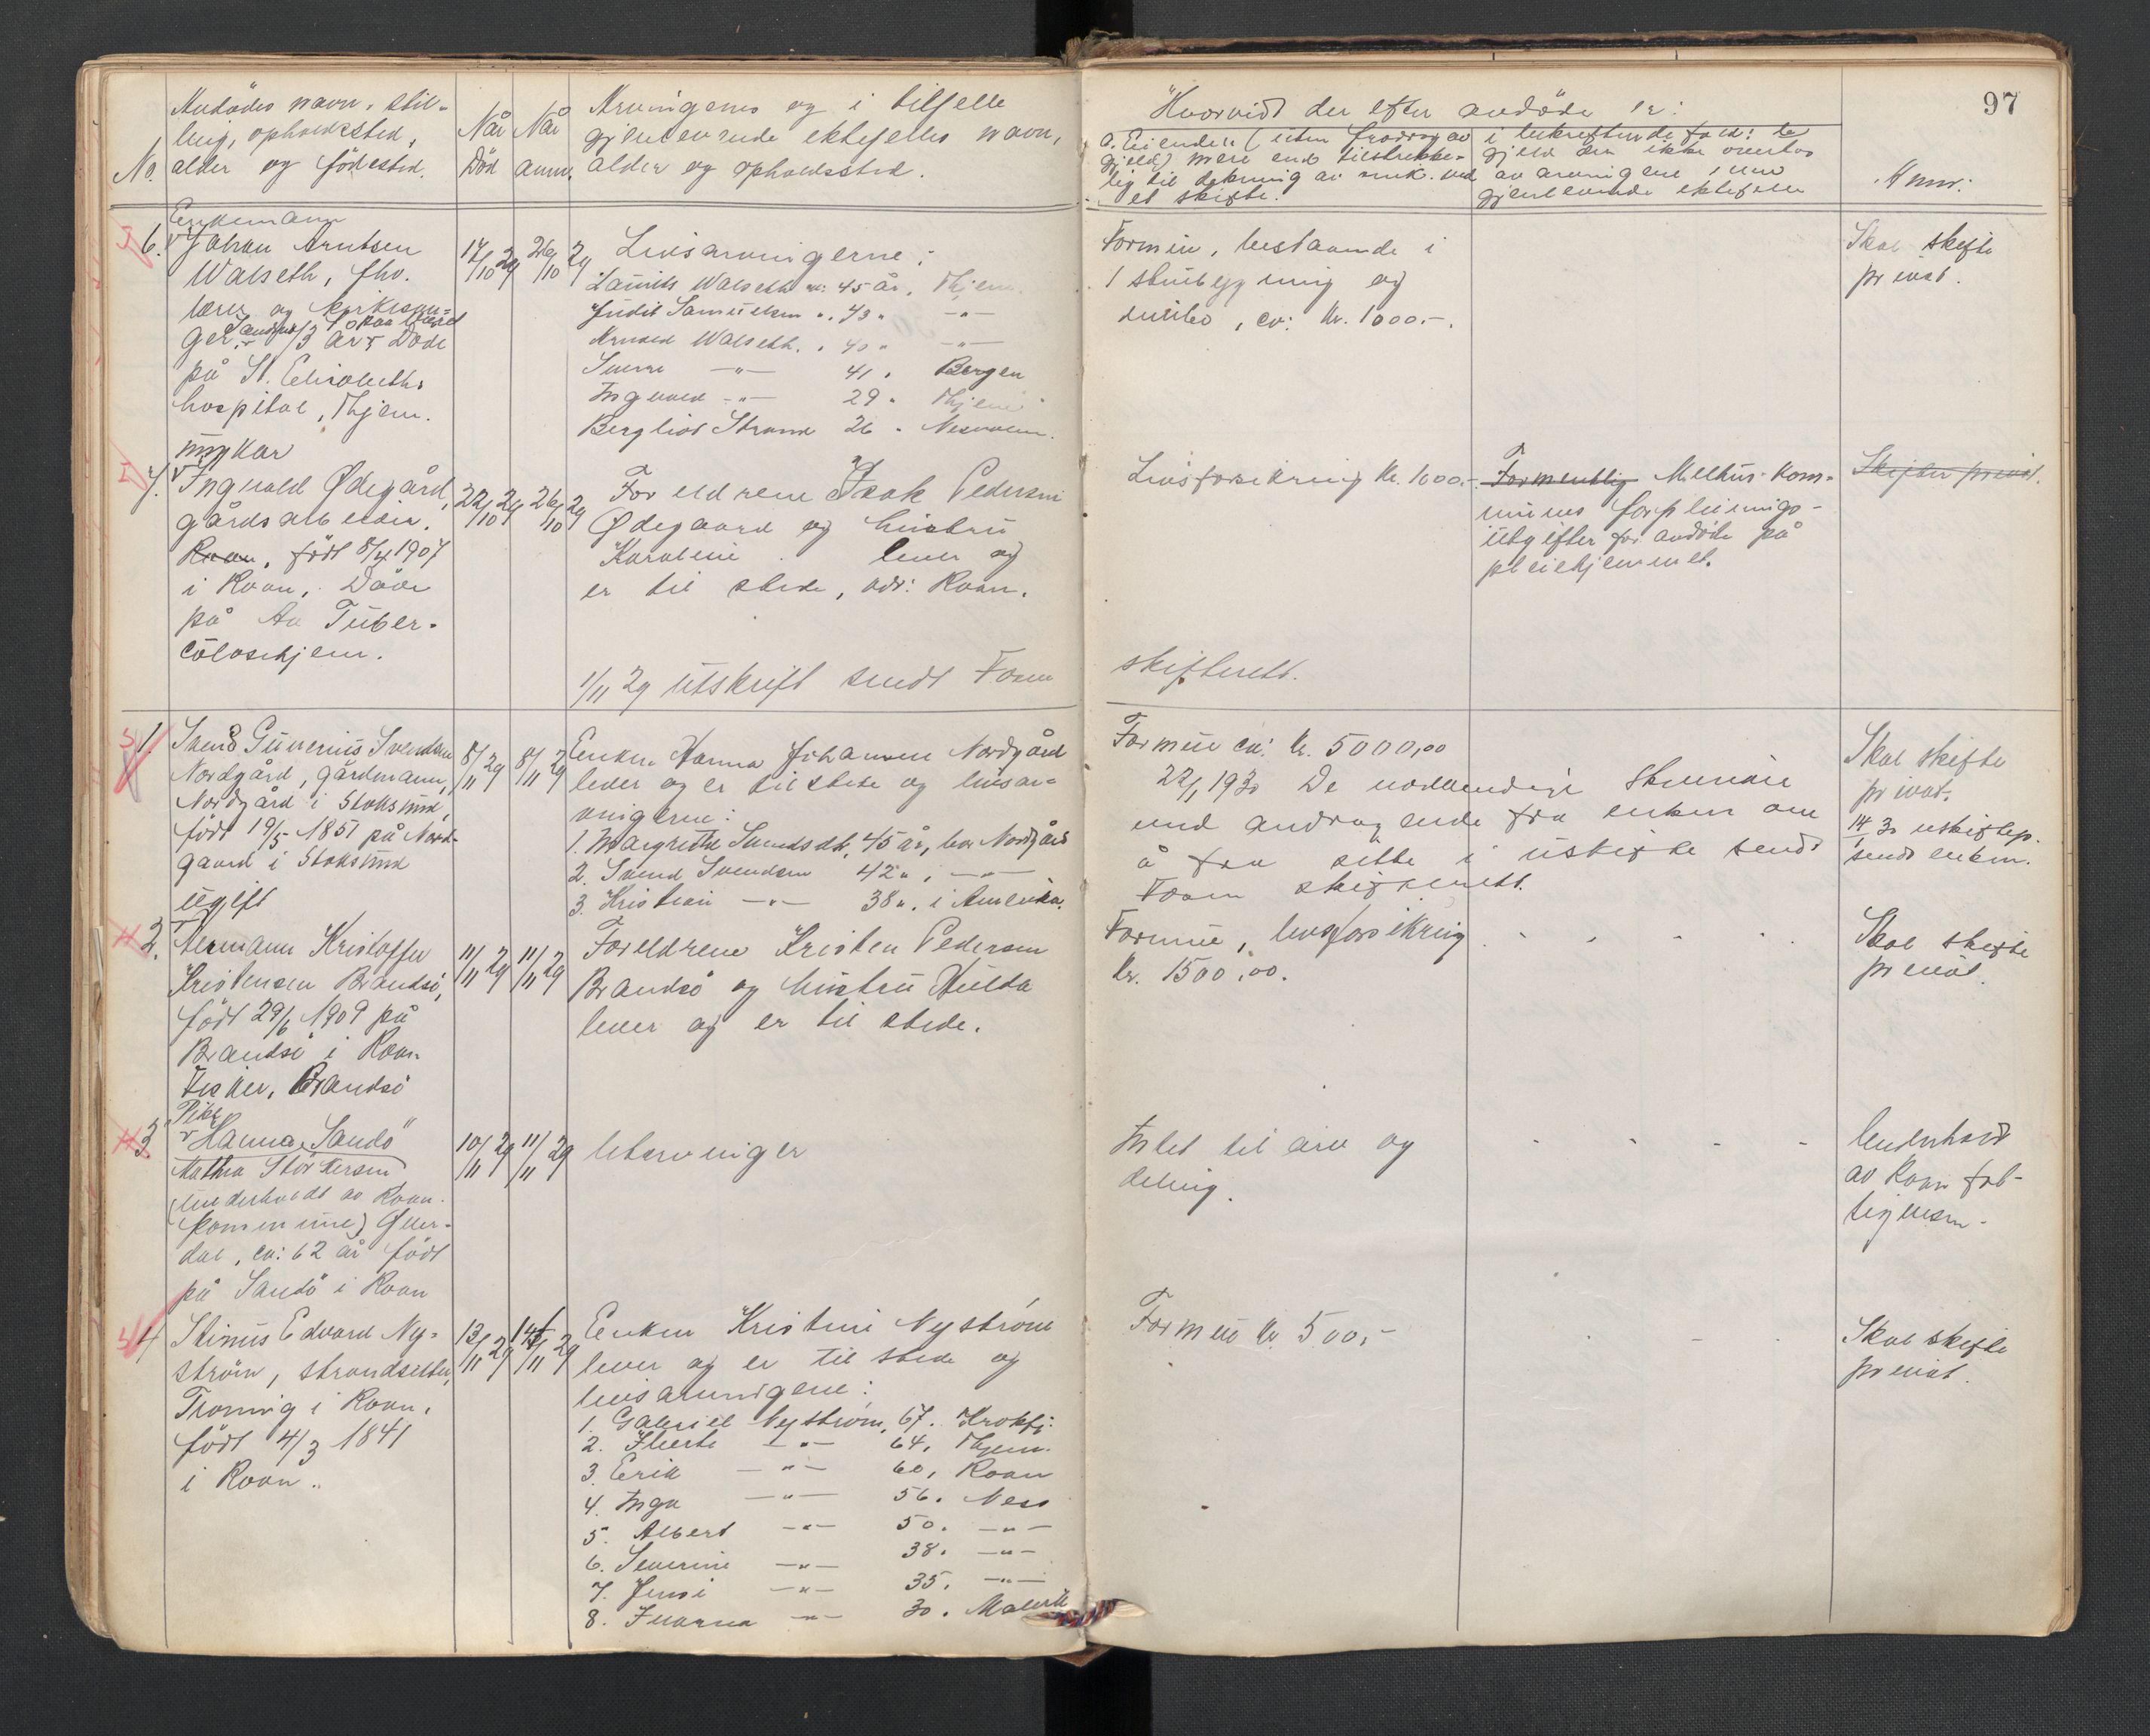 97
Avdödes navn, stil-
ling, opholdssted,
No. alder og födested.
Når
Död
Når
anm.
Arvingenes og i tilfelle
gjenlevende ektefelles navn,
alder og opholdssted.
Hvorvidt der efter avdöde er:
a. Eiendele (uten fradrag av
gjeld) mere end tilstrekke-
lig til dekning av omk. ved
et skifte.
i bekreftende fald: b
gjeld der ikke overtas
av arvingene,
gjenlevende ektefelle
Anm.
Enkemann
6. Johan Arntsen
Walseth, fhv.
lærer og kirkesan-
ger. 73 år. Döde
på St. Elisabeths
hospital, Thjem.
17/10 29
26/10 29
Livsarvingerne:
Laurits Walseth 45 år, Thjem.
Judit Samuelsen " 43 " — " —
Arnold Walseth. " 40 " — " —
Sverre — " — 41 " Bergen
Ingvald — " — 29 " Thjem
Bergliot Strand 26 "
Formue, bestaaende i
1 stuebygning og
innbo, ca: kr. 1000.-.
Skal skifte
privat.
ungkar
7. Ingvald Ødegård,
gårdsarbeider.
Roan, födt 8/4 1907
i Roan, Döde
på Aa Tuber-
culosehjem.
22/10 29
26/10 29
Foreldrene Isak Pedersen
Ødegaard og hustru
Karoline lever og
er til stede, adr: Roan.
Livsforsikring kr. 1000.-
Formentlig Melhus kom-
munes forpleinings-
utgifter for avdöde på
pleiehjemmet.
Skifter privat.
1/11 29 utskrift sendt Fosen
skifterett.
1. Svend Gunerius Svendsen
Nordgård, gårdmann,
Nordgård i Stoksund,
födt 19/5 1851 på Nord-
gaard i Stoksund
8/11 29
8/11 29
Enken Hanna Johansen Nordgård
lever og er tilstede og livsar-
vingerne:
1. Margrethe Svendsdtr, 45 år, bor Nordgård
2. Svend Svendsen 42 ", — " —
3. Kristian — " — 38 ". i Amerika.
Formue ca: kr. 5000,00
22/1 1930 De nödvendige skemaer
med andragende fra enken om
å faa sitte i uskifte sendt
Fosen skifterett.
Skal skifte
privat.
14/1 30 uskiftep.
sendt enken.
ugift
2. Hermann Kristoffer
Kristensen Brandsö,
födt 29/6 1909 på
Brandsö i Roan
Fisker, Brandsö
11/11 29
11/11 29
Foreldrene Kristen Pedersen
Brandsö og hustru Hulda
lever og er til stede.
Formue, livsforsikring
kr. 1500,00.
Skal skifte
privat.
Pike
3. "Hanna Sandö"
Mathea
(underholdt av Roan
kommune)
dal, ca: 62 år födt
på Sandö i Roan
10/11 29
11/11 29
Utarvinger
Intet til arv og
deling.
Underhold
av Roan fat-
tigvesen.
4. Stinus Edvard Ny-
ström, strandsitter,
Troning i Roan,
födt 4/3 1841
i Roan.
13/11 29
14/11 29
Enken Kristine Nyström
lever og er til stede og
livsarvingene:
1. Gabriel Nyström, 67. Krokfj.
2. — " — 64, Thjem.
3. Erik — " — 60, Roan
4. Inga — " — 56. Ness
5. Albert — " — 50. — " —
6. Severine — " — 38. — " —
7. Jensi — " — 35. — " —
8. — " — 30. Malvik
Formue kr. 500,-
Skal skifte
privat.